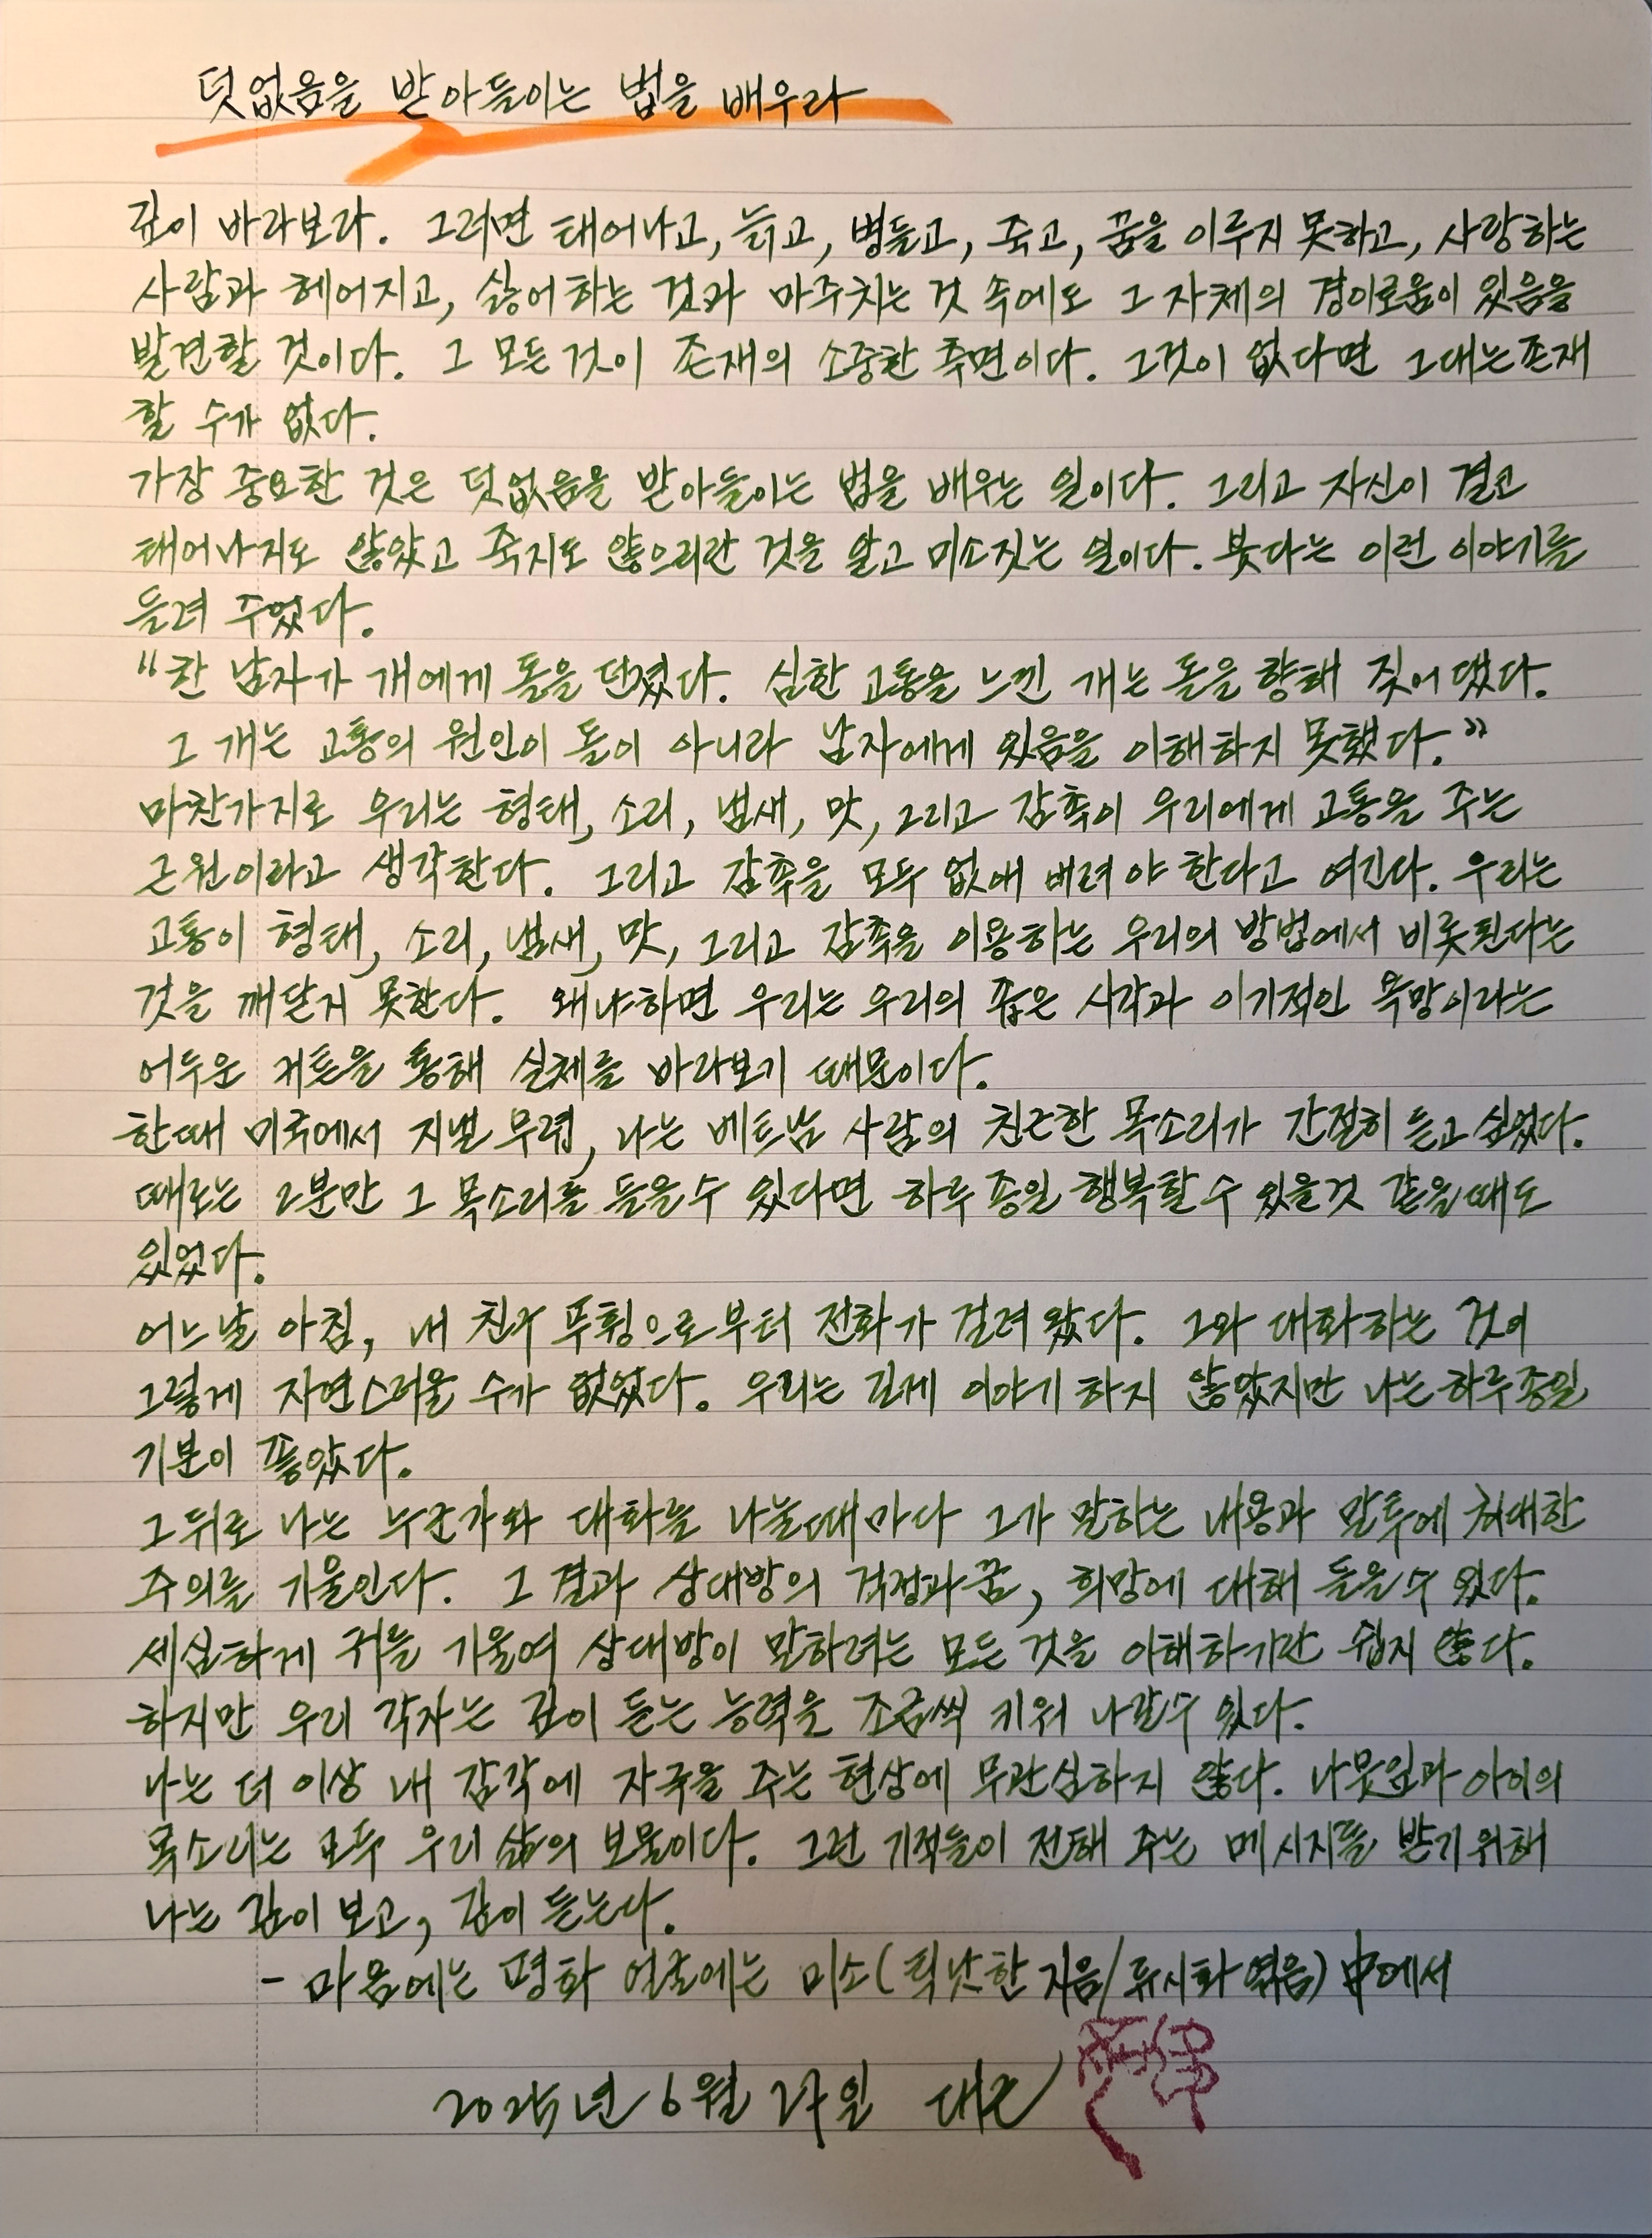 덧없음을 받아들이는 법을 배우라
깊이 바라보라. 그러면 태어나고, 늙고, 병들고, 죽고, 꿈을 이루지 못하고, 사랑하는
사람과 헤어지고, 싫어하는 것과 마주치는 것 속에도 그 자체의 경이로움이 있음을
발견할 것이다. 그 모든 것이 존재의 소중한 측면이다. 그것이 없다면 그대는 존재
할 수가 없다.
가장 중요한 것은 덧없음을 받아들이는 법을 배우는 일이다. 그리고 자신이 결코
태어나지도 않았고 죽지도 않으리란 것을 알고 미소짓는 일이다. 붓다는 이런 이야기를
들려 주었다.
"한 남자가 개에게 돌을 던졌다. 심한 고통을 느낀 개는 돌을 향해 짖어 댔다.
그 개는 고통의 원인이 돌이 아니라 남자에게 있음을 이해하지 못했다."
마찬가지로 우리는 형태, 소리, 냄새, 맛, 그리고 감촉이 우리에게 고통을 주는
근원이라고 생각한다. 그리고 감촉을 모두 없애 버려야 한다고 여긴다. 우리는
고통이 형태, 소리, 냄새, 맛, 그리고 감촉을 이용하는 우리의 방법에서 비롯된다는
것을 깨닫지 못한다. 왜냐하면 우리는 우리의 좁은 시각과 이기적인 욕망이라는
어두운 커튼을 통해 실체를 바라보기 때문이다.
한때 미국에서 지낼 무렵, 나는 베트남 사람의 친근한 목소리가 간절히 듣고 싶었다.
때로는 2분만 그 목소리를 들을수 있다면 하루 종일 행복할 수 있을것 같을때도
있었다.
어느날 아침, 내 친구 푸훵으로부터 전화가 걸려 왔다. 그와 대화하는 것이
그렇게 자연스러울 수가 없었다. 우리는 길게 이야기 하지 않았지만 나는 하루종일
기분이 좋았다.
그 뒤로 나는 누군가와 대화를 나눌때마다 그가 말하는 내용과 말투에 최대한
주의를 기울인다. 그 결과 상대방의 걱정과 꿈, 희망에 대해 들을 수 있다.
세심하게 귀를 기울여 상대방이 말하려는 모든 것을 이해하기란 쉽지 않다.
하지만 우리 각자는 깊이 듣는 능력을 조금씩 키워 나갈수 있다.
나는 더 이상 내 감각에 자극을 주는 현상에 무관심하지 않다. 나뭇잎과 아이의
목소리는 모두 우리 삶의 보물이다. 그런 기적들이 전해 주는 메시지를 받기 위해
나는 깊이 보고, 깊이 듣는다.
- 마음에는 평화 얼굴에는 미소(틱낫한 지음/류시화 엮음) 中에서
2025년 6월 27일